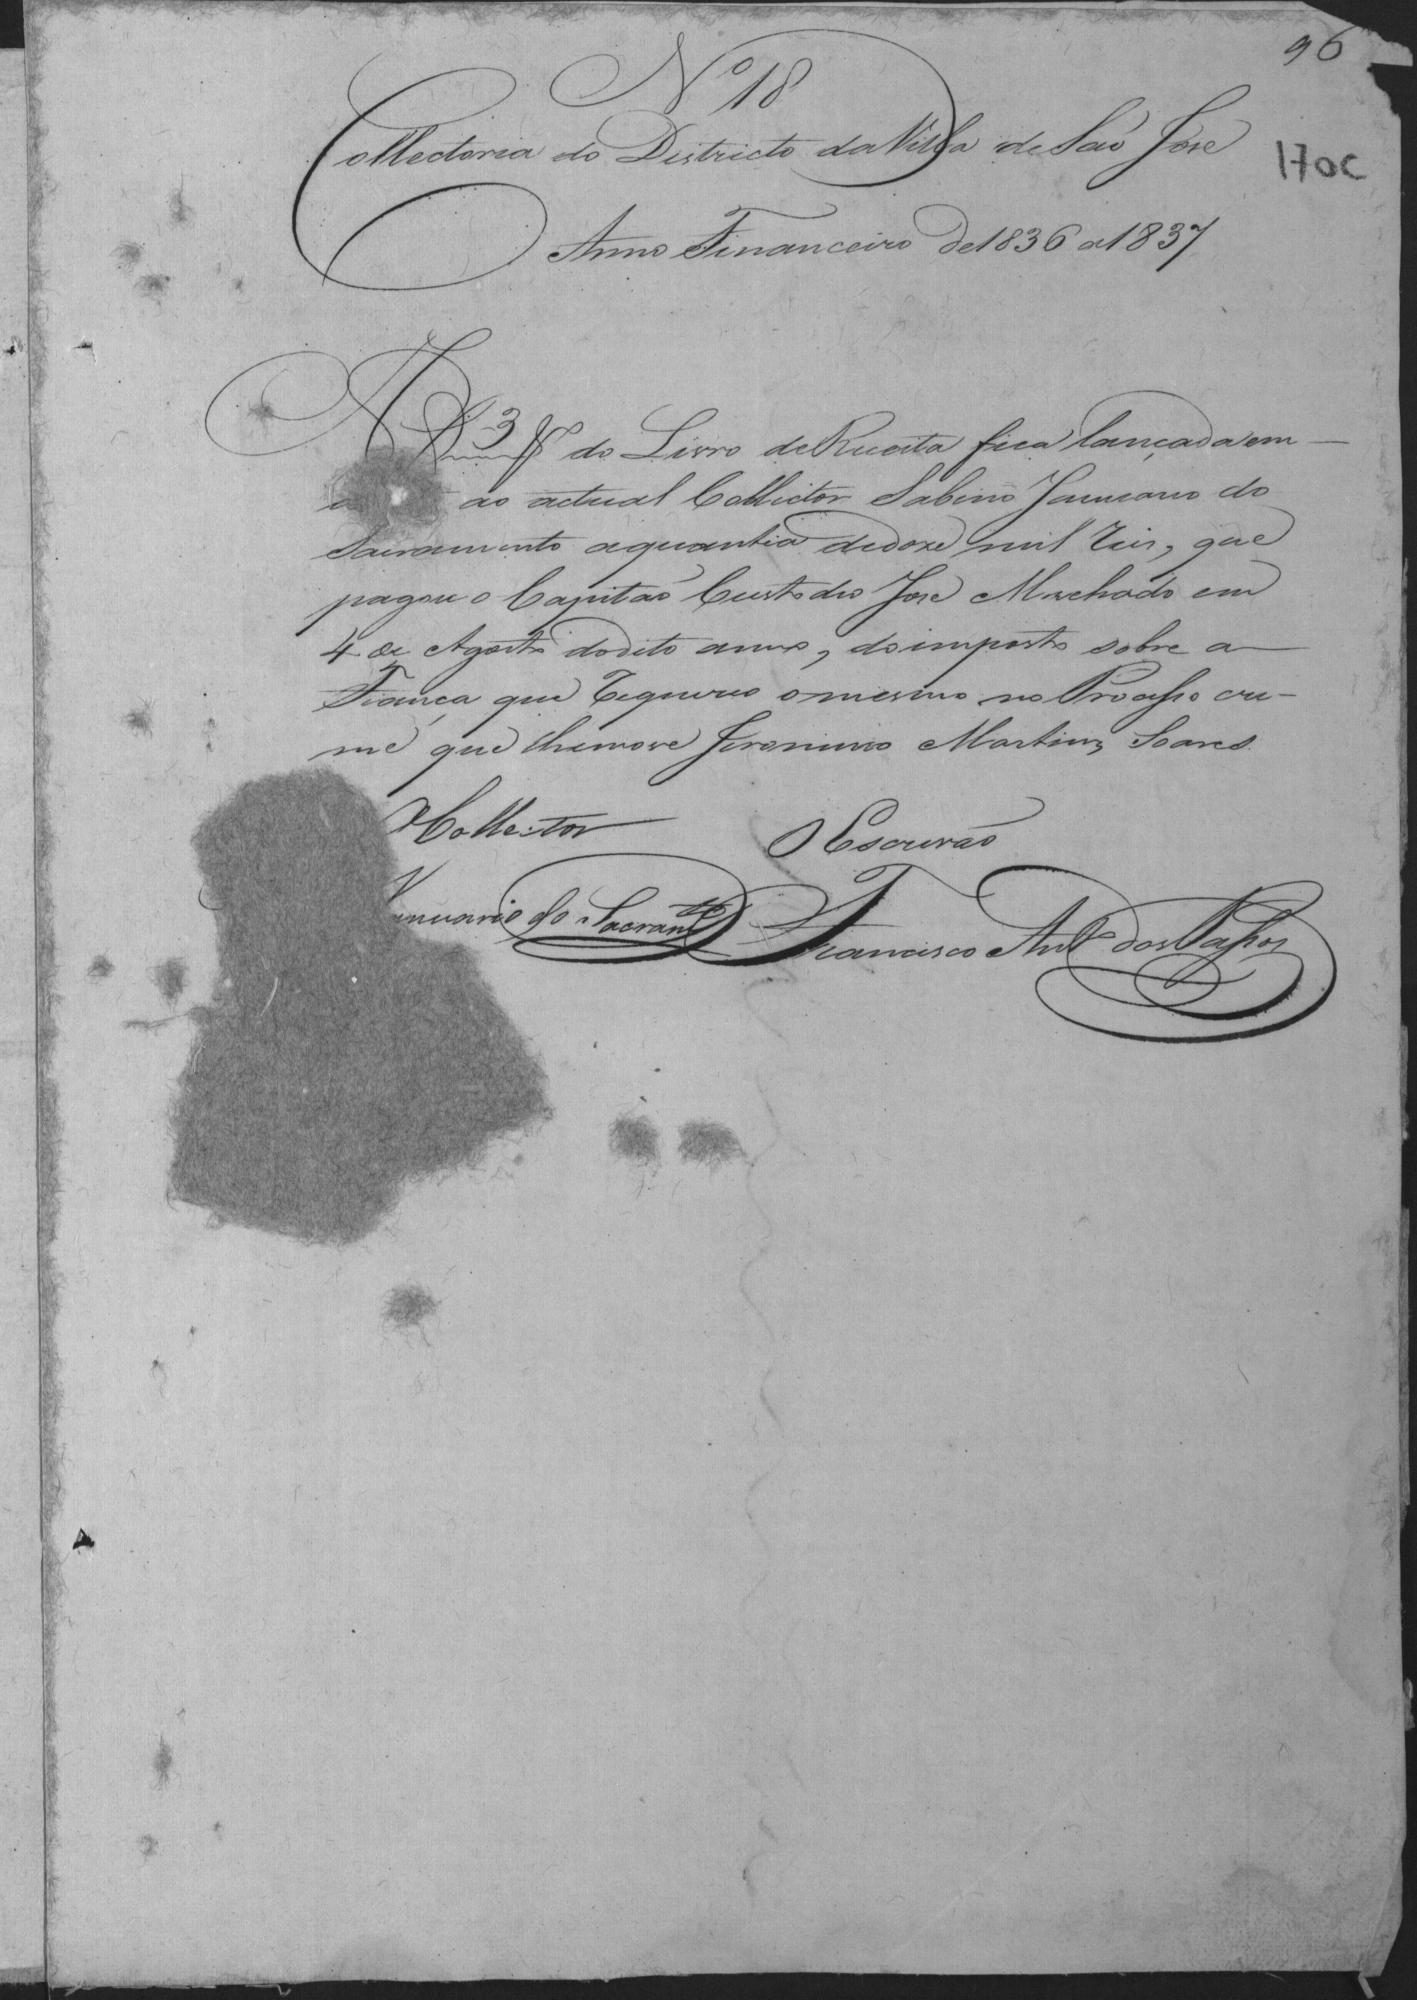 96
Nº 18
Collectoria do Districto da Villa de São José
170C
Anno Financeiro de 1836 a 1837
A 3 do Livro de Receita fica lançada em
ao actual Collector Sabino Januario do
Sacramento a quantia de doze mil reis, que
pagou o Capitão Custodio José Machado em
4 de Agosto do dito anno, do imposto sobre a
Fiança que requereu o mesmo no Processo cri-
me que lhe move Jeronimo Martins Soares
O Collector O Escrivão
Januario do Sacramto Francisco Anto dos Passos